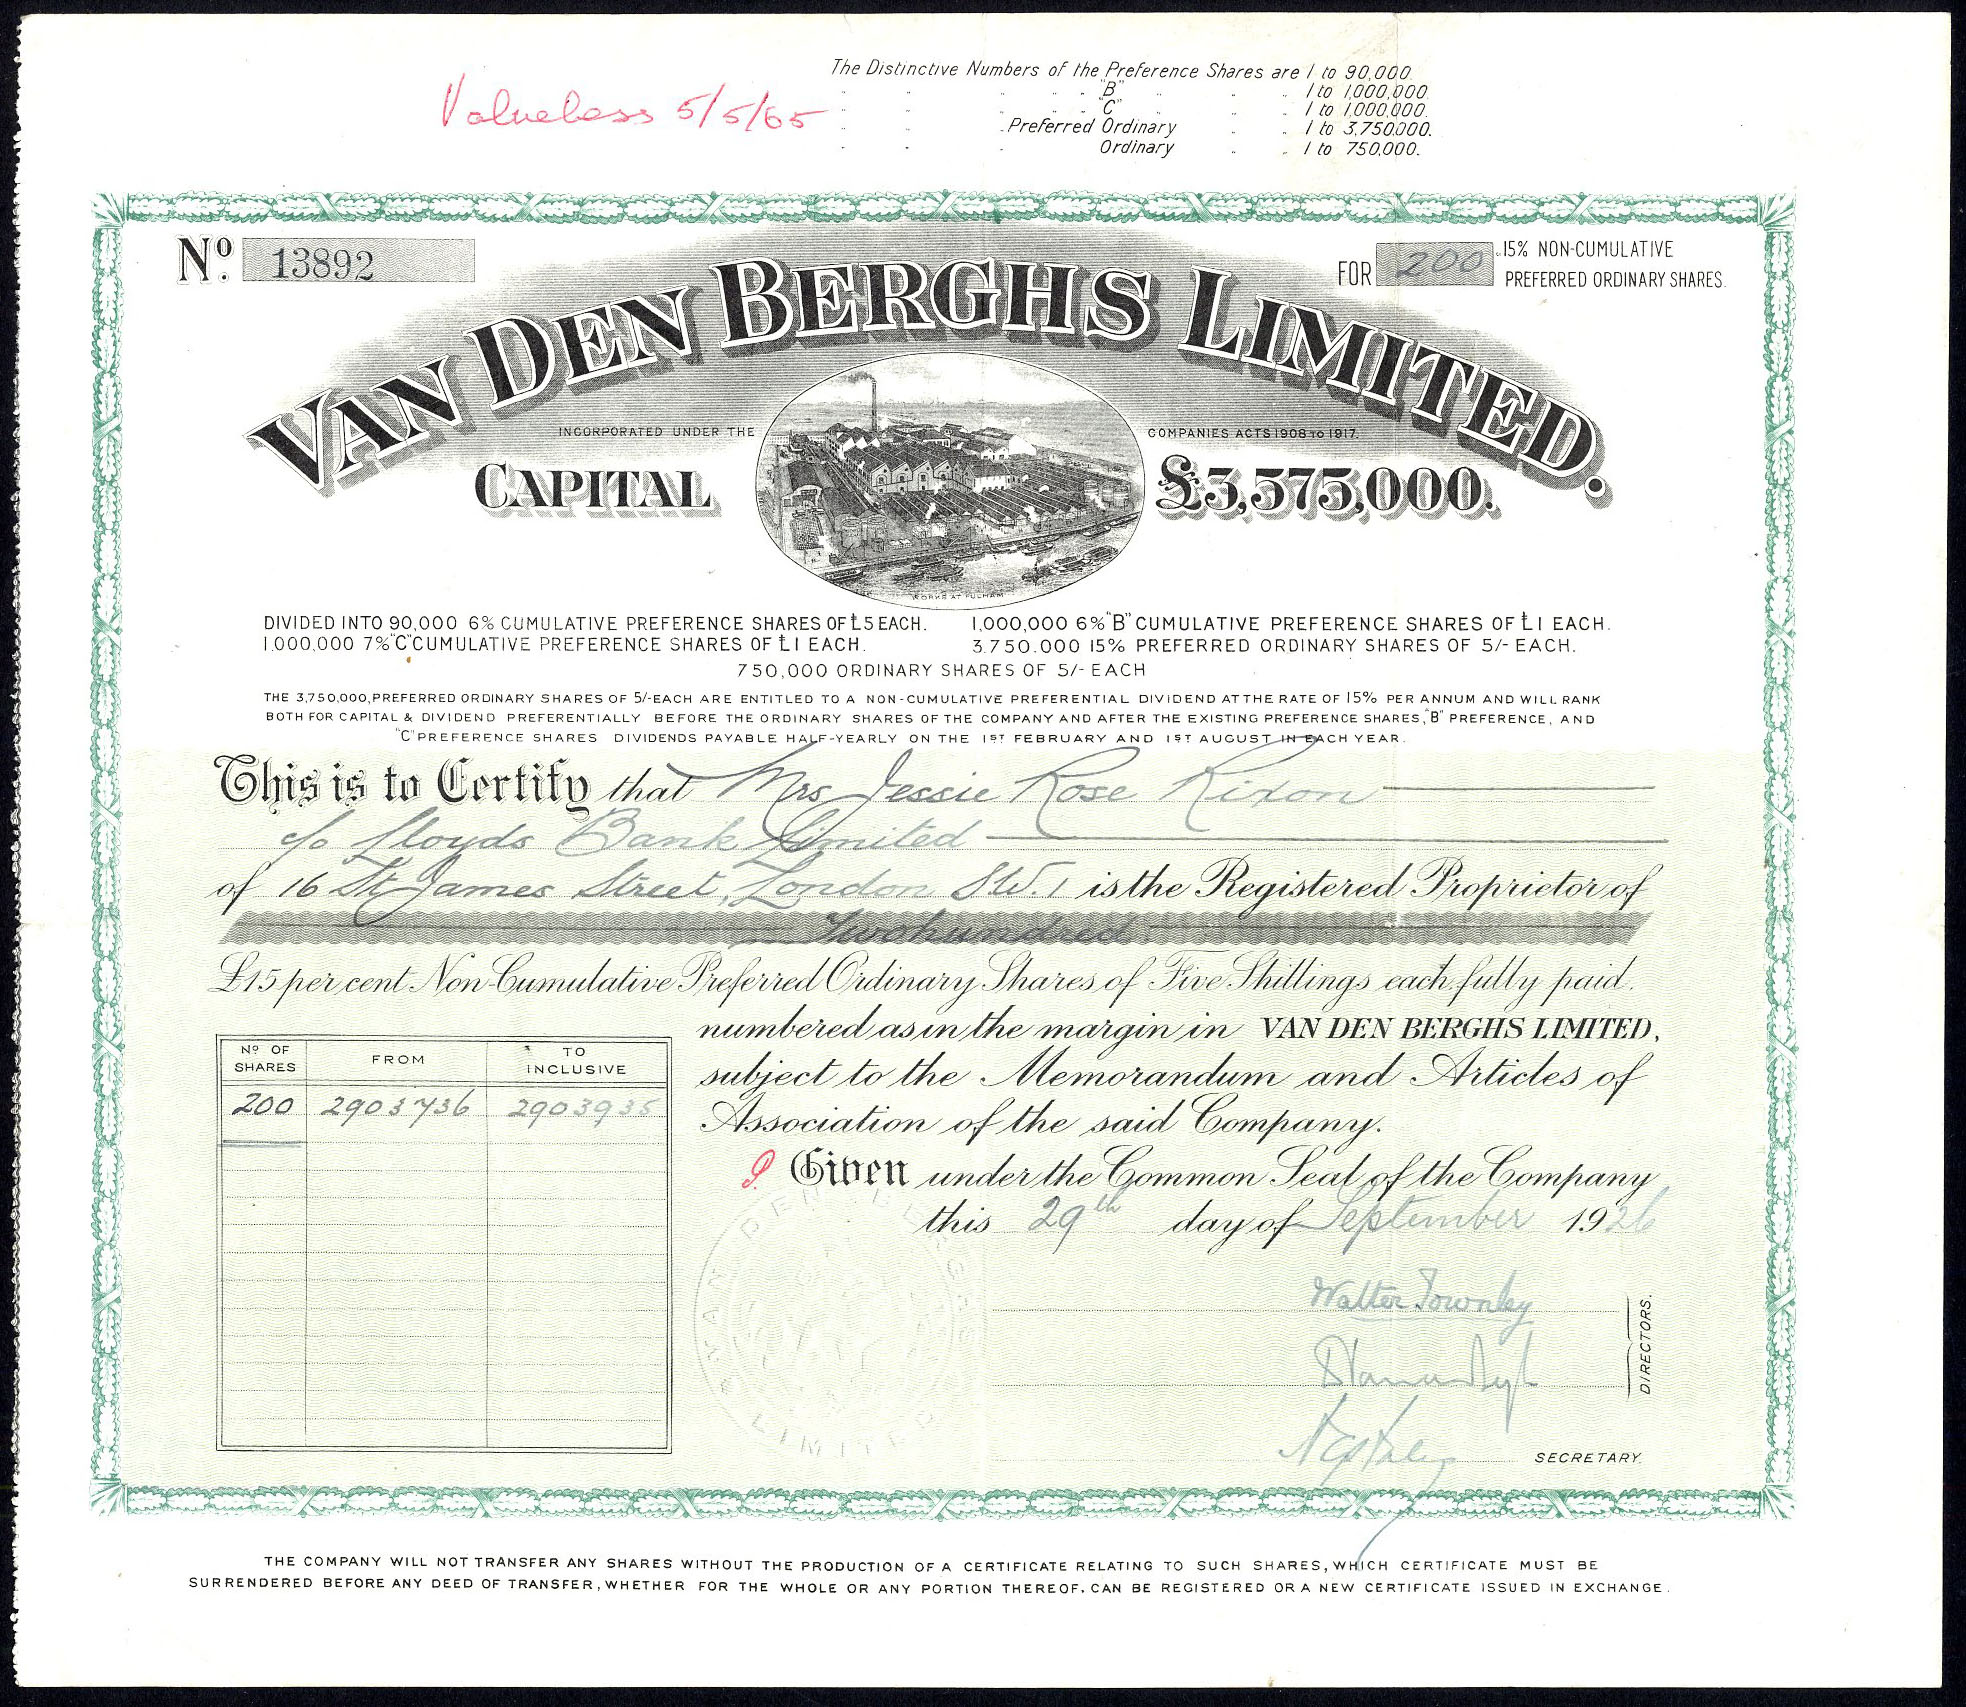 Valueless 5/5/65
The Distinctive Numbers of the Preference Shares are 1 to 90,000.
" " " " "B" " " " 1 to 1,000,000.
" " " " "C" " " " 1 to 1,000,000.
" " " Preferred Ordinary " " 1 to 3,750,000.
" " " Ordinary " " 1 to 750,000.
No. 13892
FOR 200 15% NON-CUMULATIVE
PREFERRED ORDINARY SHARES.
VAN DEN BERGHS LIMITED.
INCORPORATED UNDER THE COMPANIES ACTS 1908 TO 1917.
CAPITAL £3,375,000.
WORKS AT FULHAM
DIVIDED INTO 90,000 6% CUMULATIVE PREFERENCE SHARES OF £5 EACH. 1,000,000 6% "B" CUMULATIVE PREFERENCE SHARES OF £1 EACH.
1.000,000 7% "C" CUMULATIVE PREFERENCE SHARES OF £1 EACH. 3.750.000 15% PREFERRED ORDINARY SHARES OF 5/- EACH.
750,000 ORDINARY SHARES OF 5/- EACH
THE 3,750,000, PREFERRED ORDINARY SHARES OF 5/- EACH ARE ENTITLED TO A NON-CUMULATIVE PREFERENTIAL DIVIDEND AT THE RATE OF 15% PER ANNUM AND WILL RANK
BOTH FOR CAPITAL & DIVIDEND PREFERENTIALLY BEFORE THE ORDINARY SHARES OF THE COMPANY AND AFTER THE EXISTING PREFERENCE SHARES, "B" PREFERENCE, AND
"C" PREFERENCE SHARES DIVIDENDS PAYABLE HALF-YEARLY ON THE 1ST FEBRUARY AND 1ST AUGUST IN EACH YEAR.
This is to Certify that Mrs Jessie Rose Rixon
c/o Lloyds Bank Limited
of 16 St James Street, London S.W.1 is the Registered Proprietor of
Two hundred
£15 per cent Non-Cumulative Preferred Ordinary Shares of Five Shillings each, fully paid.
numbered as in the margin in VAN DEN BERGHS LIMITED,
subject to the Memorandum and Articles of
Association of the said Company.
Given under the Common Seal of the Company
this 29th day of September 1926
No OF SHARES FROM TO INCLUSIVE
200 2903736 2903935
VAN DEN BERGHS LIMITED
Walter Townley
DIRECTORS.
SECRETARY.
THE COMPANY WILL NOT TRANSFER ANY SHARES WITHOUT THE PRODUCTION OF A CERTIFICATE RELATING TO SUCH SHARES, WHICH CERTIFICATE MUST BE
SURRENDERED BEFORE ANY DEED OF TRANSFER, WHETHER FOR THE WHOLE OR ANY PORTION THEREOF, CAN BE REGISTERED OR A NEW CERTIFICATE ISSUED IN EXCHANGE.